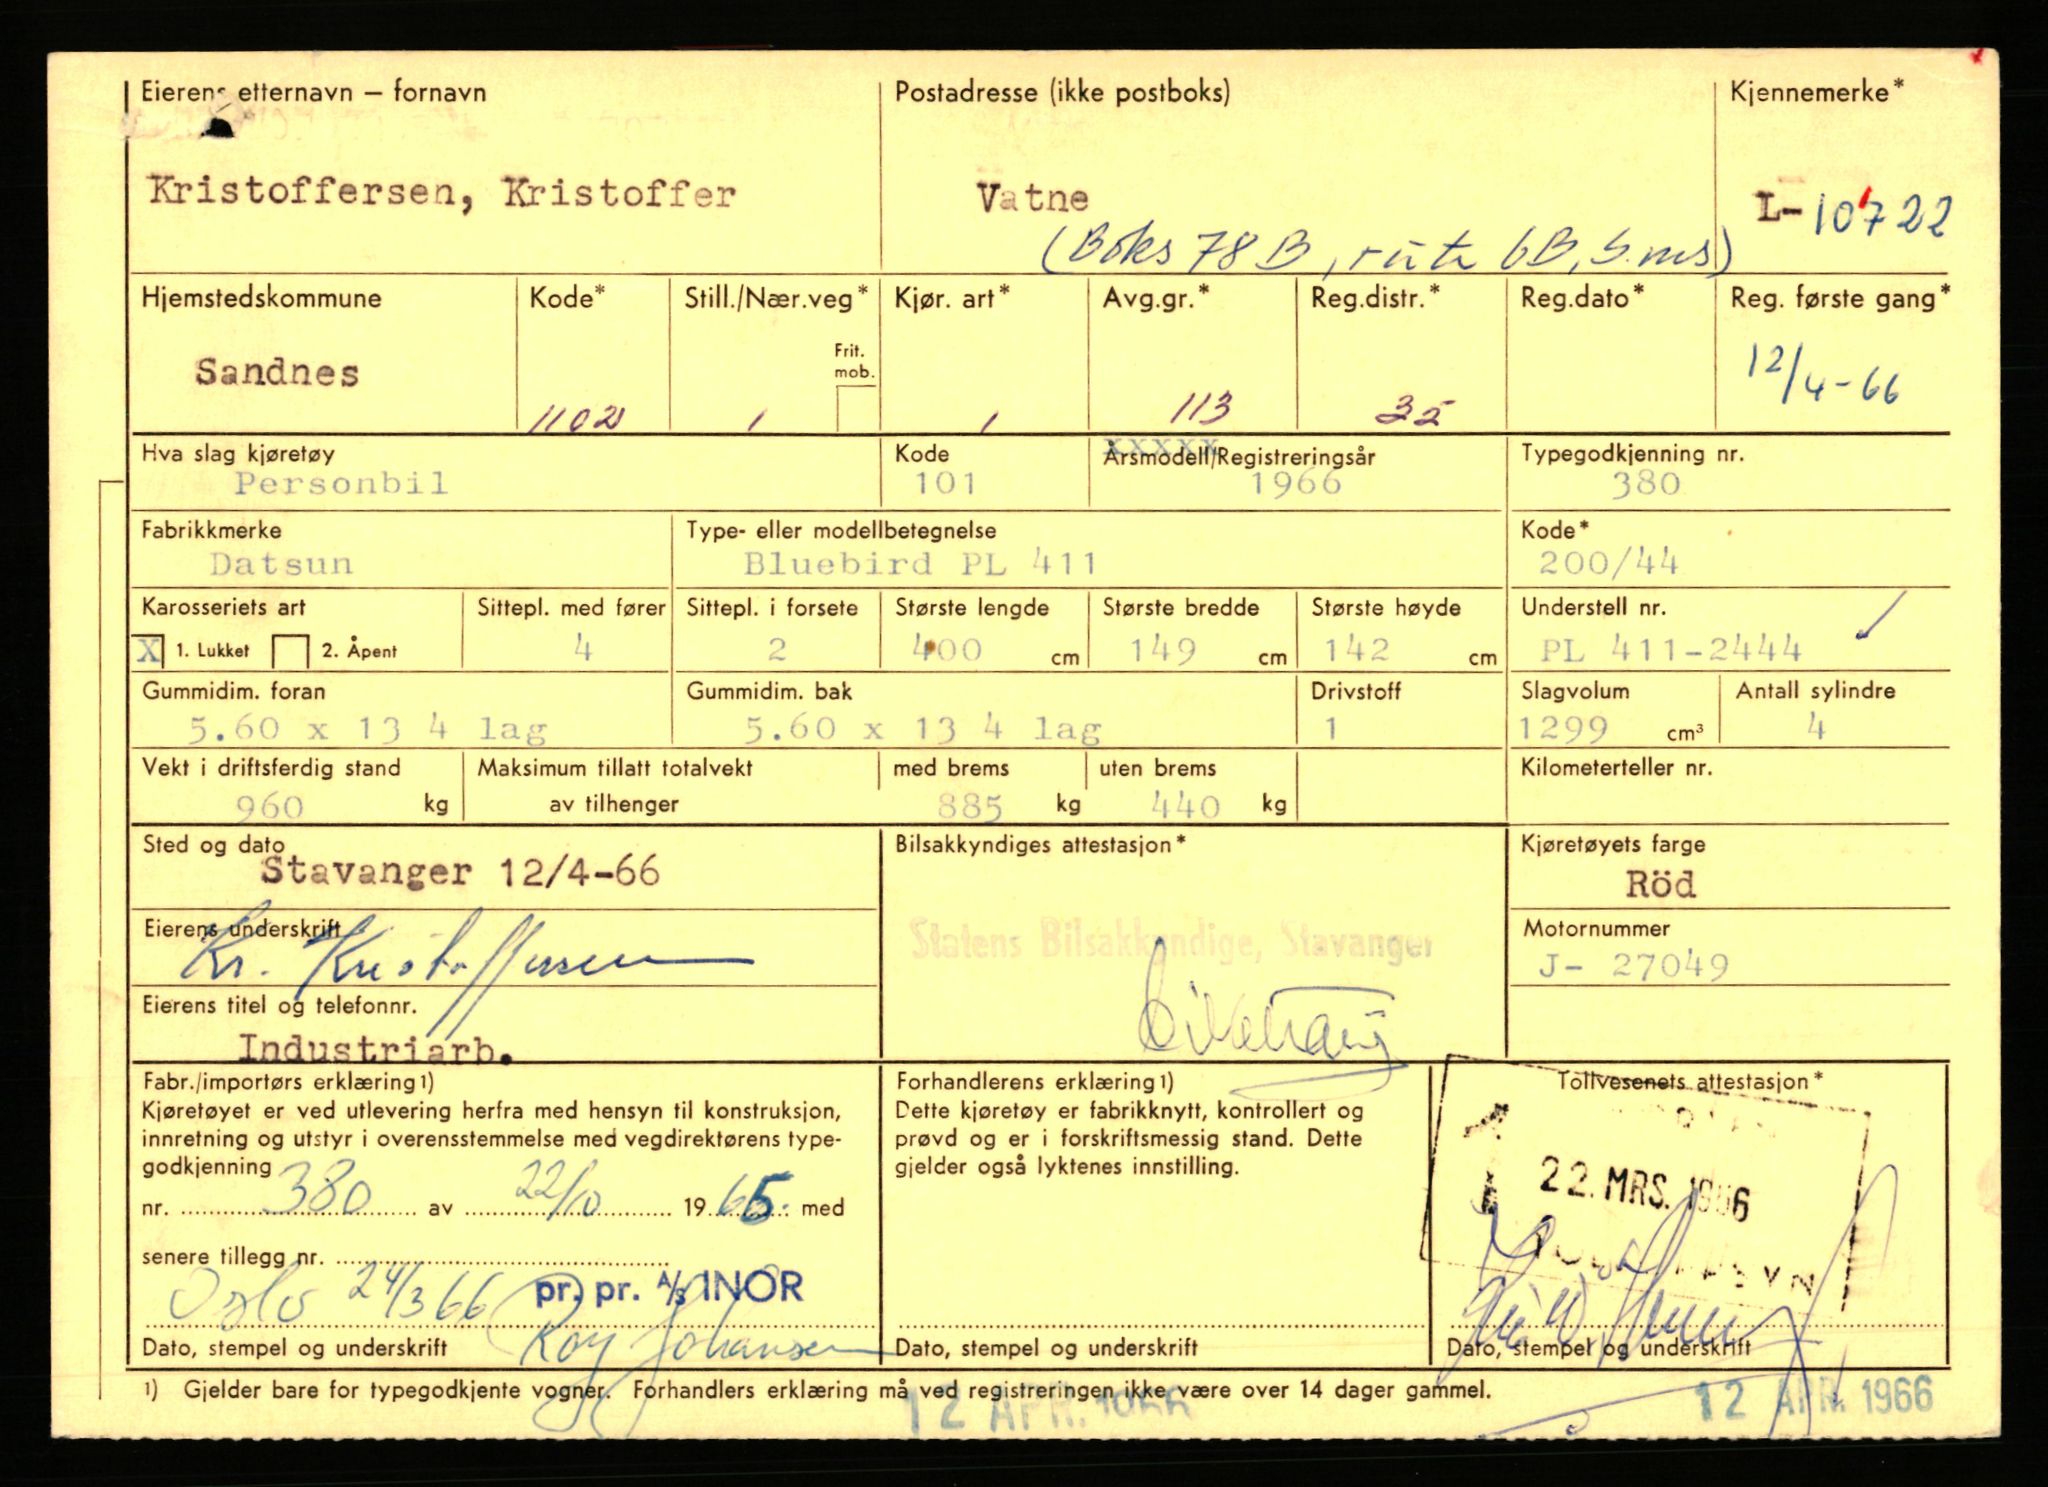 Eierens etternavn – fornavn
Postadresse (ikke postboks)
Kjennemerke*
Kristoffersen, Kristoffer
Vatne
L-10722
(Boks 78 B, rute 6B, S.nes)
Hjemstedskommune
Kode*
Still./Nær.veg*
Kjør. art*
Avg.gr.*
Reg.distr.*
Reg.dato*
Reg. første gang*
Frit. mob.
Sandnes
1102
1
1
113
35
12/4-66
Hva slag kjøretøy
Kode
Årsmodell/Registreringsår
Typegodkjenning nr.
Personbil
101
xxxxx
1966
380
Fabrikkmerke
Type- eller modellbetegnelse
Kode*
Datsun
Bluebird PL 411
200/44
Karosseriets art
Sittepl. med fører
Sittepl. i forsete
Største lengde
Største bredde
Største høyde
Understell nr.
X 1. Lukket 2. Åpent
4
2
400 cm
149 cm
142 cm
PL 411-2444
Gummidim. foran
Gummidim. bak
Drivstoff
Slagvolum
Antall sylindre
5.60 x 13 4 lag
5.60 x 13 4 lag
1
1299 cm³
4
Vekt i driftsferdig stand
Maksimum tillatt totalvekt
med brems
uten brems
Kilometerteller nr.
960 kg
av tilhenger
885 kg
440 kg
Sted og dato
Bilsakkyndiges attestasjon*
Kjøretøyets farge
Stavanger 12/4-66
Röd
Eierens underskrift
Kr. Kristoffersen
Statens Bilsakkyndige, Stavanger
Motornummer
J- 27049
Eierens titel og telefonnr.
Industriarb.
Fabr./importørs erklæring 1)
Forhandlerens erklæring 1)
Tollvesenets attestasjon*
Kjøretøyet er ved utlevering herfra med hensyn til konstruksjon,
innretning og utstyr i overensstemmelse med vegdirektørens type-
godkjenning
nr. 380 av 22/10 1965. med
senere tillegg nr.
Dette kjøretøy er fabrikknytt, kontrollert og
prøvd og er i forskriftsmessig stand. Dette
gjelder også lyktenes innstilling.
22. MRS. 1966
Oslo 24/3 66
pr. pr. A/S INOR
Roy Johansen
Dato, stempel og underskrift
Dato, stempel og underskrift
Dato, stempel og underskrift
1) Gjelder bare for typegodkjente vogner. Forhandlers erklæring må ved registreringen ikke være over 14 dager gammel.
12 APR. 1966
12 APR. 1966